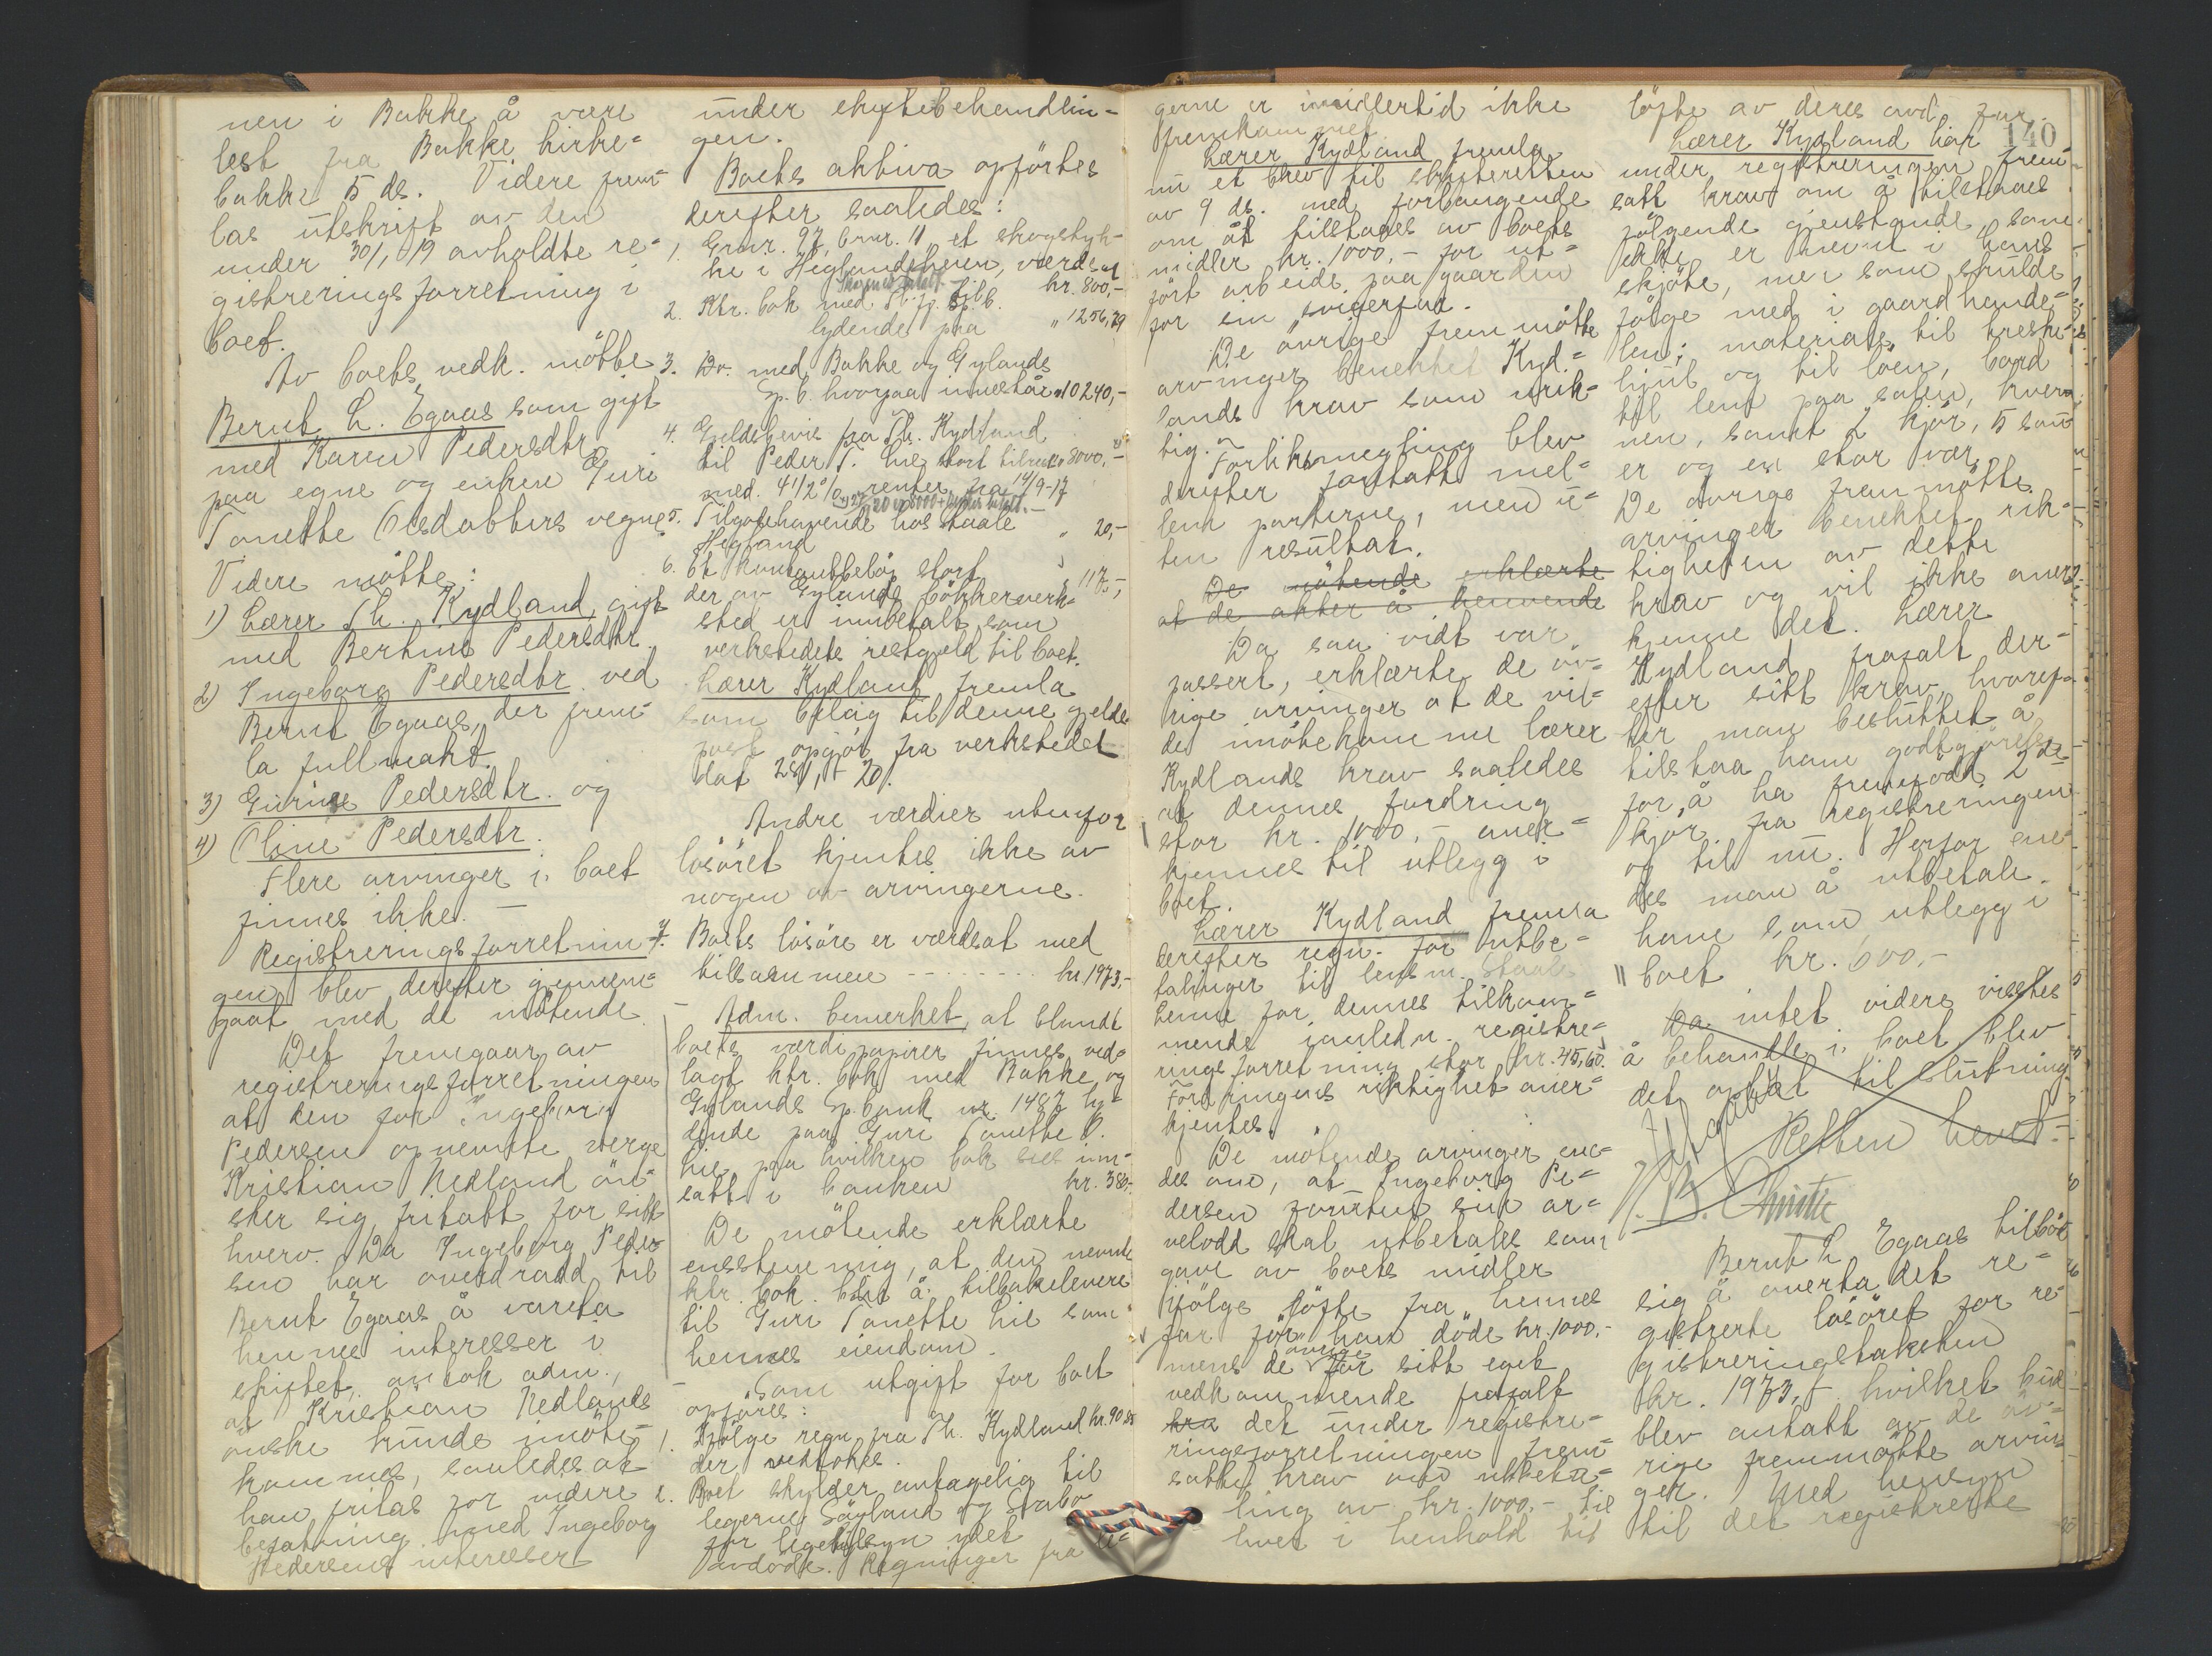 nen i Bakke å være
lest fra Bakke kirke=
bakke 15 ds. Videre frem=
las utskrift av den
under 30/1, 19 avholdte re=
gistreringsforretning i
boet.
Av boets vedk. møtte
Bernt L. Egaas som gift
med Karen Pedersdtr.
paa egne og enken Guri
Tonette Olsdatters vegne.
Videre møtte:
1) Lærer Th. Kydland, gift
med Bertine Pedersdtr.
2) Ingeborg Pedersdtr. ved
Bernt Egaas, der frem=
la fullmakt.
3) Gurine Pedersdtr. og
4) Oline Pedersdtr.
Flere arvinger i boet
finnes ikke. —
Registreringsforretnin=
gen blev derefter gjennem=
gaat med de møtende.
Det fremgaar av
registreringsforretningen
at den for Ingeborg
Pedersen opnevnte verge
Kristian Nedland øn=
sker sig fritatt for sitt
hverv. Da Ingeborg Peder
sen har overdradd til
Bernt Egaas å vareta
hennes interesser i
skiftet, antok adm.,
at Kristian Nedlands
ønske kunde imøte=
kommes, saaledes at
han fritas for videre
befatning med Ingeborg
Pedersens interesser
under skiftebehandlin=
gen.
Boets aktiva opførtes
derefter saaledes:
1. Grnr. 97, bnr. 11 et skogstyk=
ke i Heglandsheien, værdsat
kr. 800,-
2. Ktr. bok med Sp. b.
lydende paa " 1256,79
3. Do. med Bakke og Gylands
Sp. b. hvorpaa innestår " 10240,-
4. Gjeldsbevis fra Th. Kydland
til Peder T. stort " 8000,-
med 4 1/2 % renter fra 14/9-17
5. Tilgodehavende hos Staale
Hegland " 20,-
6. Et kontantbeløp stort " 117,-
der av Gylands bøkkerverk=
sted er innbetalt som
verkstedets restgjeld til boet.
Lærer Kydland fremla
som bilag til denne gjelds
post opgjør fra verkstedet
dat 28/1 - 20.
Andre værdier utenfor
løsøret kjentes ikke av
nogen av arvingerne.
7. Boets løsøre er værdsat med
tilsammen - - - - - - - - kr. 1973,-
Adm. bemerket, at blandt
boets værdipapirer finnes ved=
lagt ktr. bok med Bakke og
Gylands Sp.bank nr. 1487 ly=
dende paa Guri Tonette O.
paa hvilken bok sees inn=
satt i banken kr. 380,-
De møtende erklærte
enstemmig, at den nevnte
ktr. bok blir å tilbakelevere
til Guri Tonette som
hennes eiendom.
Som utgift for boet
opføres:
1. Ifølge regn. fra Th. Kydland kr. 90,85
der vedtokes.
2. Boet skylder antagelig til
legerne Søyland og Stabo
for legetilsyn ydet
avdøde. Regninger fra le=
gerne er imidlertid ikke
fremkommet.
Lærer Kydland fremla
nu et brev til skifteretten
av 9 ds. med forlangende
om at tilstaaes av boets
midler kr. 1000,- for ut=
ført arbeide paa gaarden
for sin svigerfar.
De øvrige fremmøtte
arvinger benektet Kyd=
lands krav som urik=
tig. Forliksmegling blev
derefter foretatt mel=
lem parterne, men u=
ten resultat.
De møtende erklærte
at de akter å henvende
Da saa vidt var
passert, erklærte de øv=
rige arvinger at de vil=
de imøtekomme lærer
Kydlands krav saaledes
at dennes fordring
stor kr. 1000,- aner=
kjennes til utlegg i
boet.
Lærer Kydland fremla
derefter regn. for utbe=
talinger til lensm. Staal
henne for dennes tilkom=
mende i anledn. registre=
ringsforretning stor kr. 45,60.
Fordringens riktighet aner=
kjentes.
De møtende arvinger ene=
des om, at Ingeborg Pe=
dersen forutem sin ar=
velodd skal utbetales som
gave av boets midler
ifølge løfte fra hennes
far før han døde kr. 1000.-
mens de øvrige for sitt eget
vedkommende frafalt
kra det under registre=
ringsforretningen frem=
satte krav om utbeta=
ling av kr. 1000,- til
hver i henhold til
løfte av deres avd. far.
140
Lærer Kydland har
under registreringen frem=
satt krav om å tilstaaes
følgende gjenstande, som
ikke er nevnt i hans
skjøte, men som skulde
følge med i gaardhande=
len: materiale til treske=
hjul og til løen, bord
til lem paa salen, kver=
nen, samt 2 kjør, 5 sau
er og en stor vær.
De øvrige fremmøtte
arvinger benektet rik=
tigheten av dette
krav og vil ikke aner=
kjenne det. Lærer
Kydland frafalt der=
efter sitt krav, hvoref=
ter man besluttet å
tilstaa ham godtgjørelse
for å ha fremfødd 2de
kjør fra registreringen
og til nu. Herfor ene=
des man å utbetale
ham som utlegg i
boet kr. 600,-
Da intet videre visstes
å behandle i boet blev
det optat til slutning
Retten hevet.
Bernt L. Egaas tilbød
sig å overta det re=
gistrerte løsøret for re=
gistreringstaksten
kr. 1973,- hvilket bud
blev antatt av de øv=
rige fremmøtte arvin
ger. Med hensyn
til det registrerte